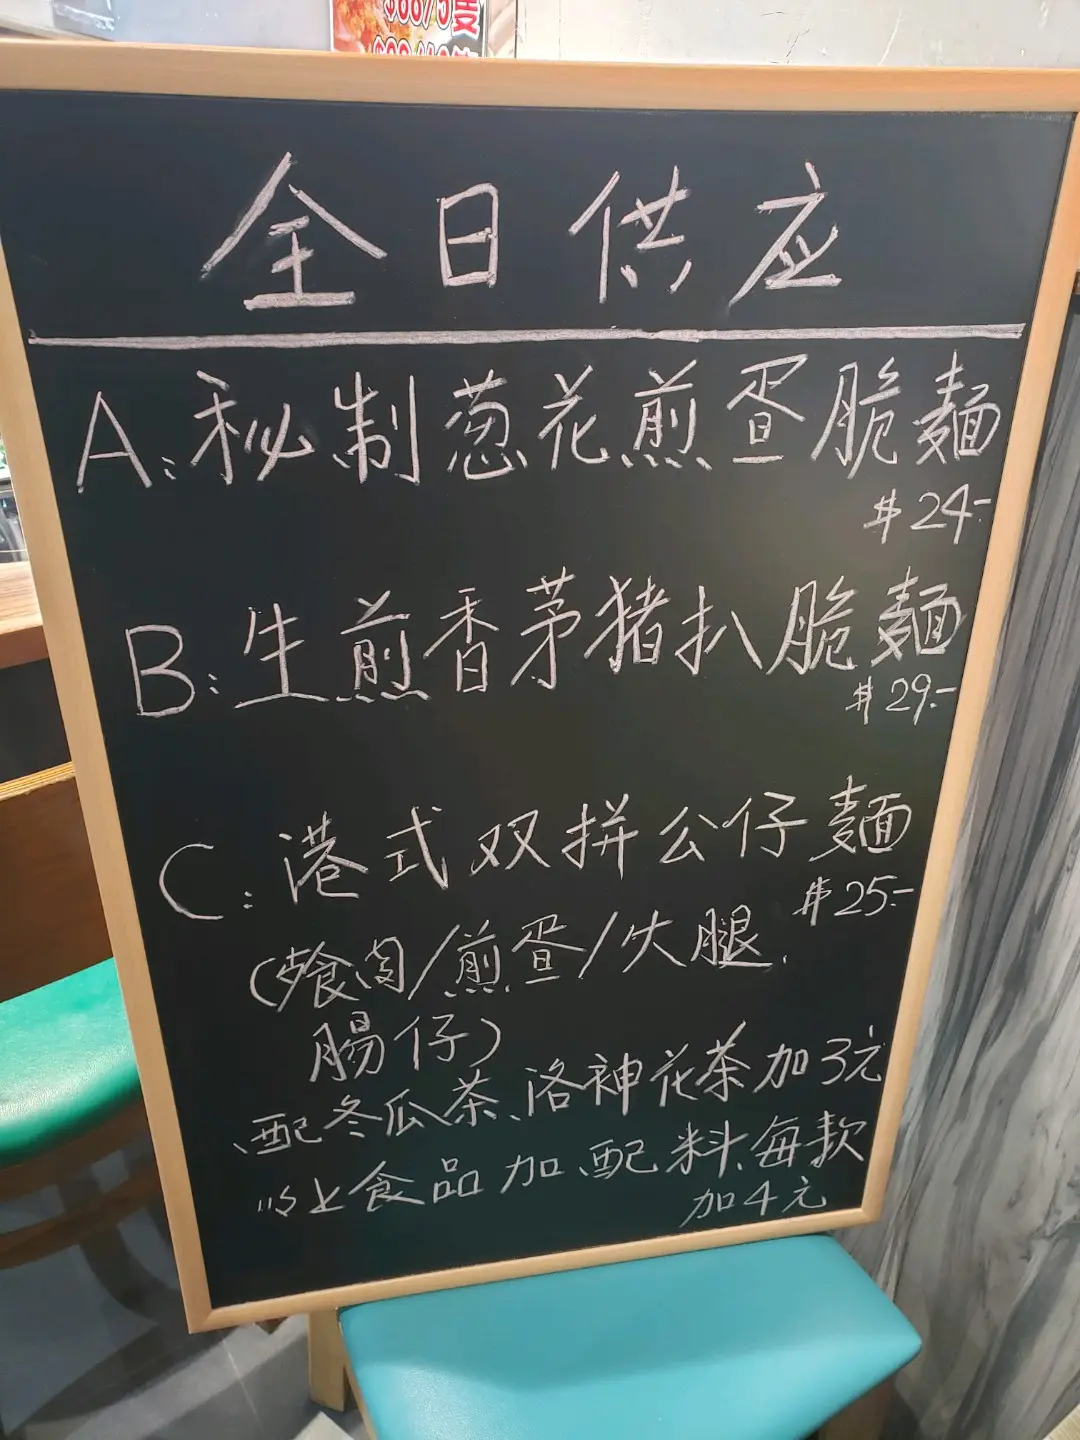 全日供应
A:秘制葱花煎蛋脆麵
$24-
B:生煎香茅猪扒脆麵
$29.-
C:港式双拼公仔麵
$25.-
(餐肉/煎蛋/火腿.
腸仔)
、配冬瓜茶、洛神花茶加3元
以上食品加、配料、每款
加4元